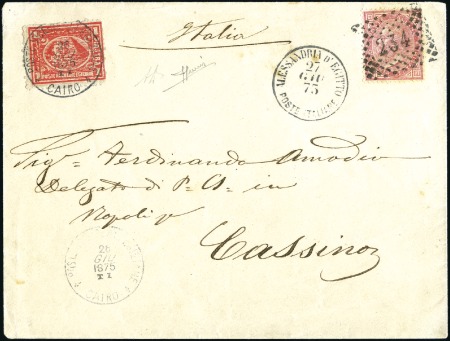 Italia
234
ALESSANDRIA D'EGITTO
27
GIU
75
POSTE ITALIANE
CAIRO
Sigr Ferdinando Amodio
Delegato di P. S. in
Napoli p
Cassino
26
GIU
1875
T I
CAIRO